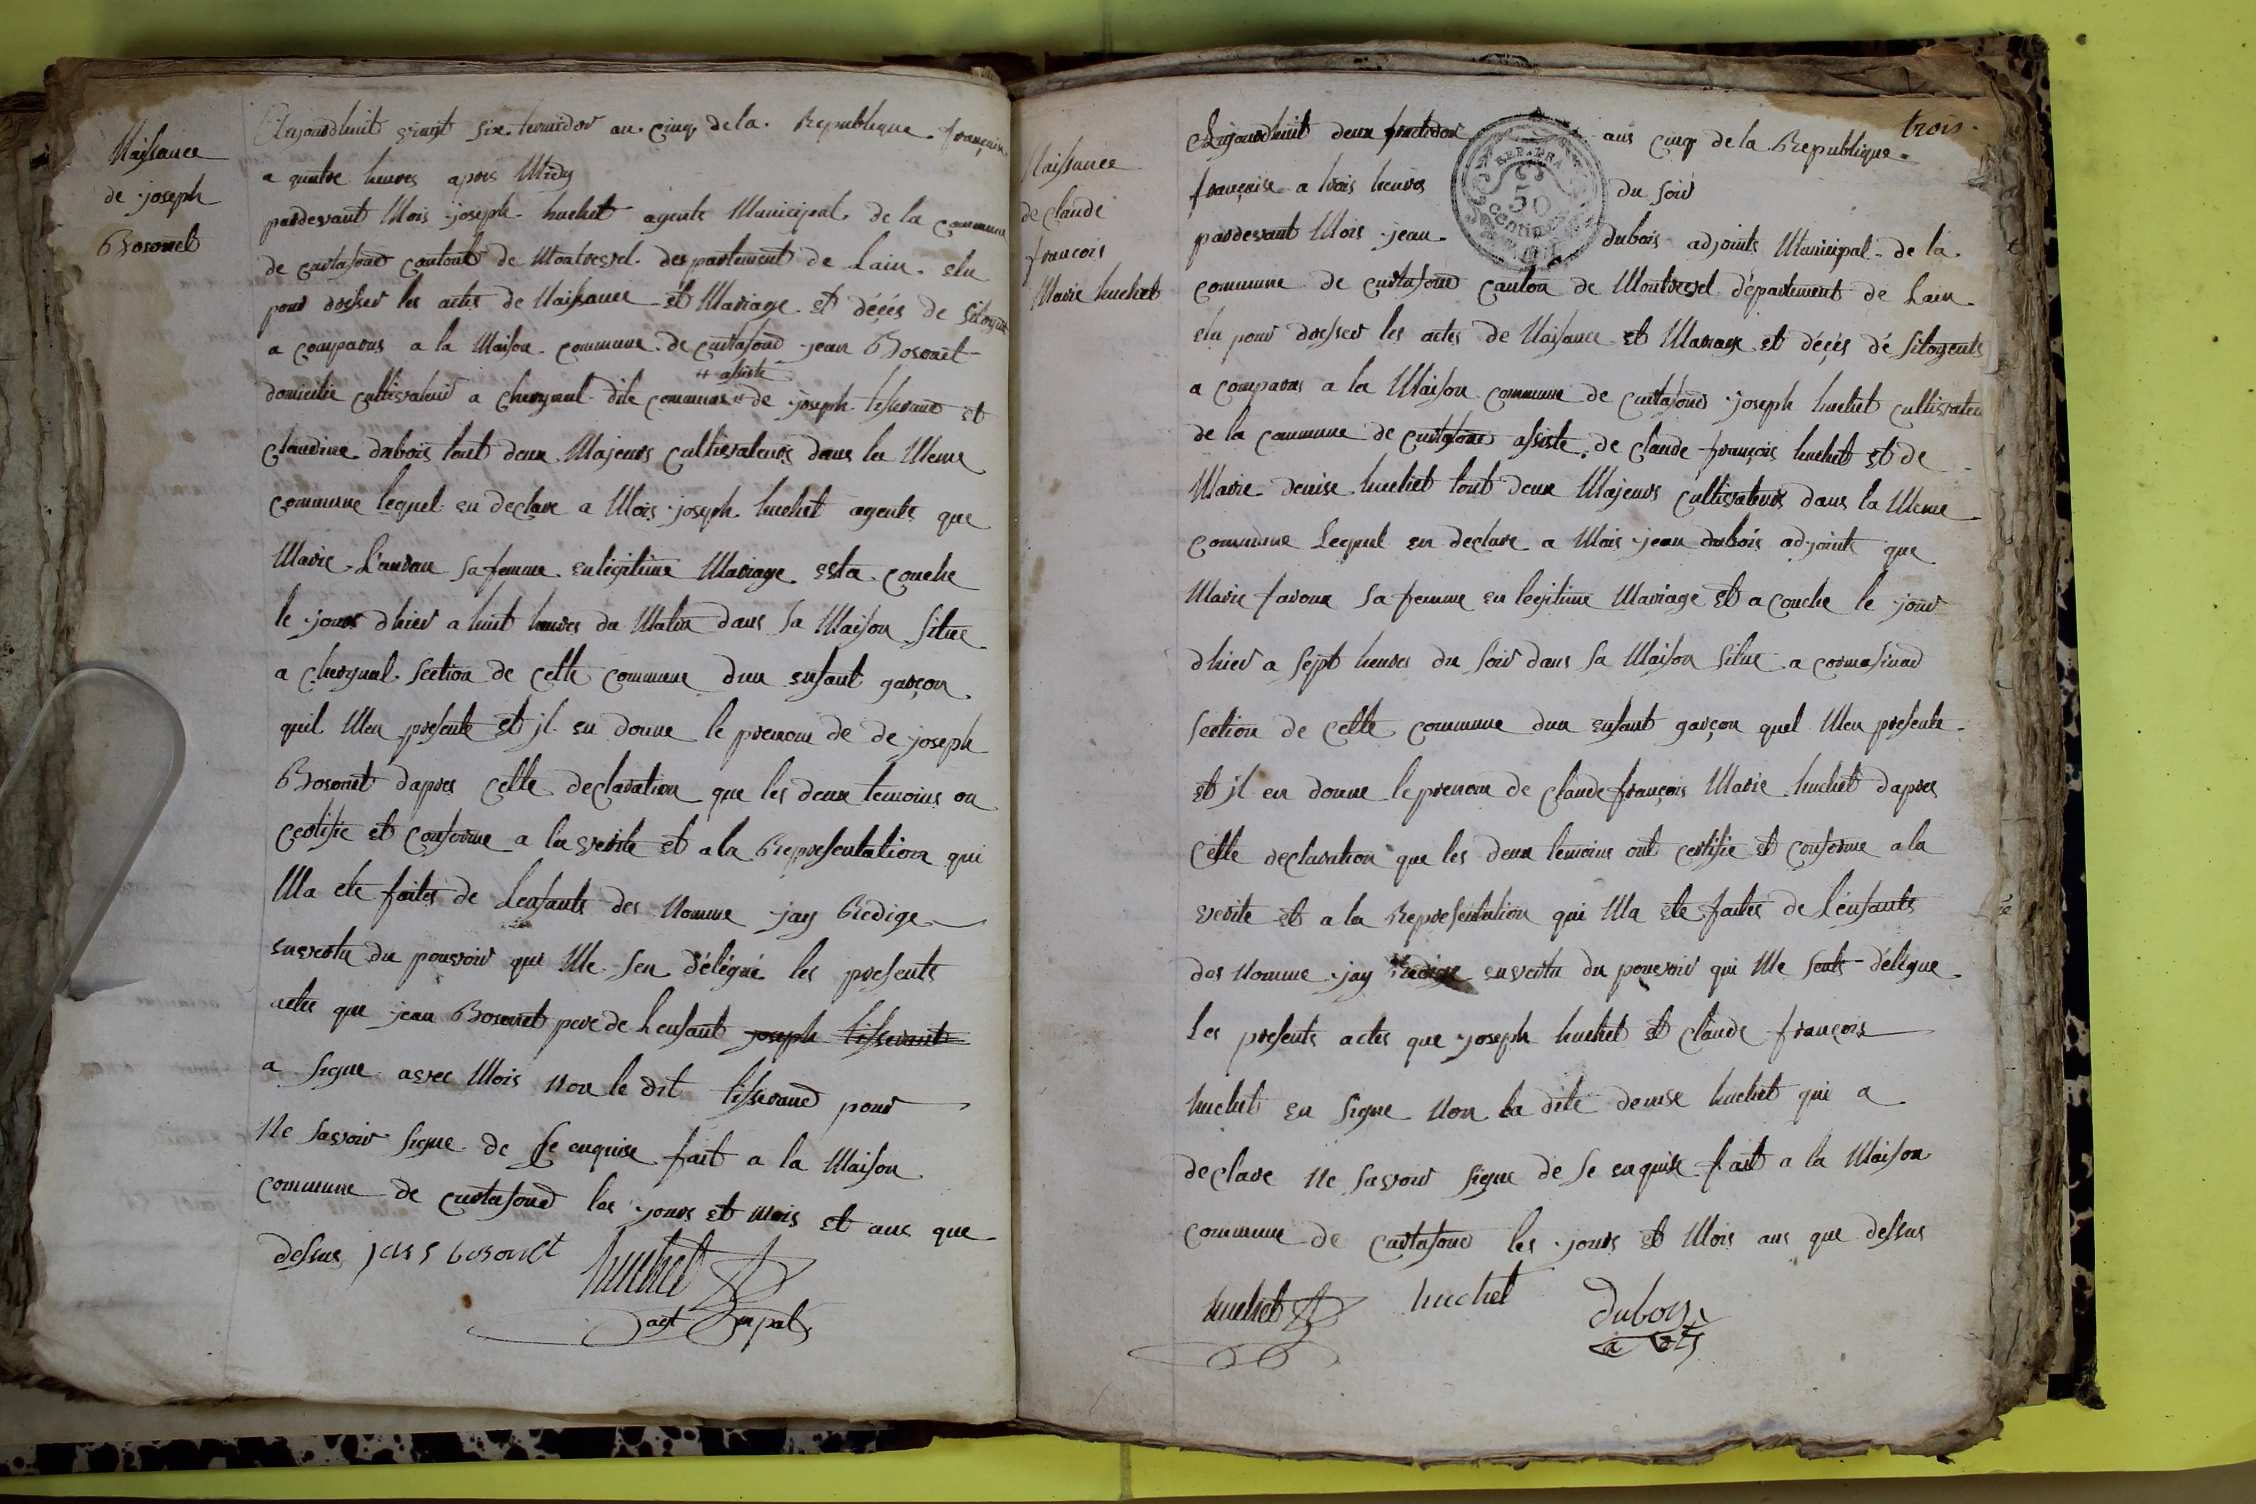 Naissance
de joseph
Bosonet
Aujourdhuit vingt six termidor an cinq de la Republique française
a quatre heures apres Midy
pardevant Mois joseph huchet agente Municipal de la commune
de curtafond cantont de Montrevel despartement de Lain elu
pour dresser les actes de Naissance et Mariage et décés de Sitoyent
a comparus a la Maison commune de curtafond jean Bosonet
domicilie cultivateur a chevynal dite commune # de joseph tisserand et
# assiste
claudine dubois tout deux Majeurs cultivateurs dans la Meme
commune lequel en declare a Mois joseph huchet agente que
Marie sa femme en légitime Mariage esta couche
le jours dhier a huit heures du Matin dans sa Maison situe
a chevynal section de cette commune dun enfant garçon
quil Men presente et jl en donne le prenom de de joseph
Bosonet dapres cette declaration que les deux temoins on
certifie et conforme a la verite et a la Representation qui
Ma ete faites de Lenfants des Nomme jay Redige
envertu du pouvoir qui Me sen délégué les presents
actes que jean Bosonet pere de Lenfant joseph tisserant
a signe avec Mois Non le dit tisserand pour
Ne savoir signe de se enquise fait a la Maison
commune de curtafond les jours et mois et ans que
dessus jans bosonet
huchet
agt mpal
trois
Naissance
de claude
françois
Marie huchet
REP. FRA
50
centimes
Aujourdhuit deux fructidor ans cinq de la Republique
française a trois heures du soir
pardevant Mois jean dubois adjoints Municipal de la
commune de curtafond canton de Montrevel département de Lain
elu pour dresser les actes de Naissance et Mariage et décés dé Sitoyents
a comparus a la Maison commune de curtafond joseph huchet cultivateu
de la commune de curtafond assiste de claude françois huchet et de
Marie denise huchet tout deux Majeurs cultivateurs dans la Meme
commune Lequel en declare a Mois jean dubois adjoints que
Marie favoux sa femme en legitime Mariage et a couche le jour
dhier a sept heures du soir dans sa Maison situe a
section de cette commune dun enfant garçon quel Men presente
et jl en donne le prenom de claude françois Marie huchet dapres
cette declaration que les deux temoins ont certifie et conforme a la
verite et a la Representation qui Ma ete faites de Lenfants
des Nomme jay Redige envertu du pouvoir qui Me sents délégue
Les presents actes que joseph huchet et claude françois
huchet en signe Non la dite denise huchet qui a
declare Ne savoir signe de se enquise fait a la Maison
commune de curtafond les jours et Mois ans que dessus
huchet huchet dubois